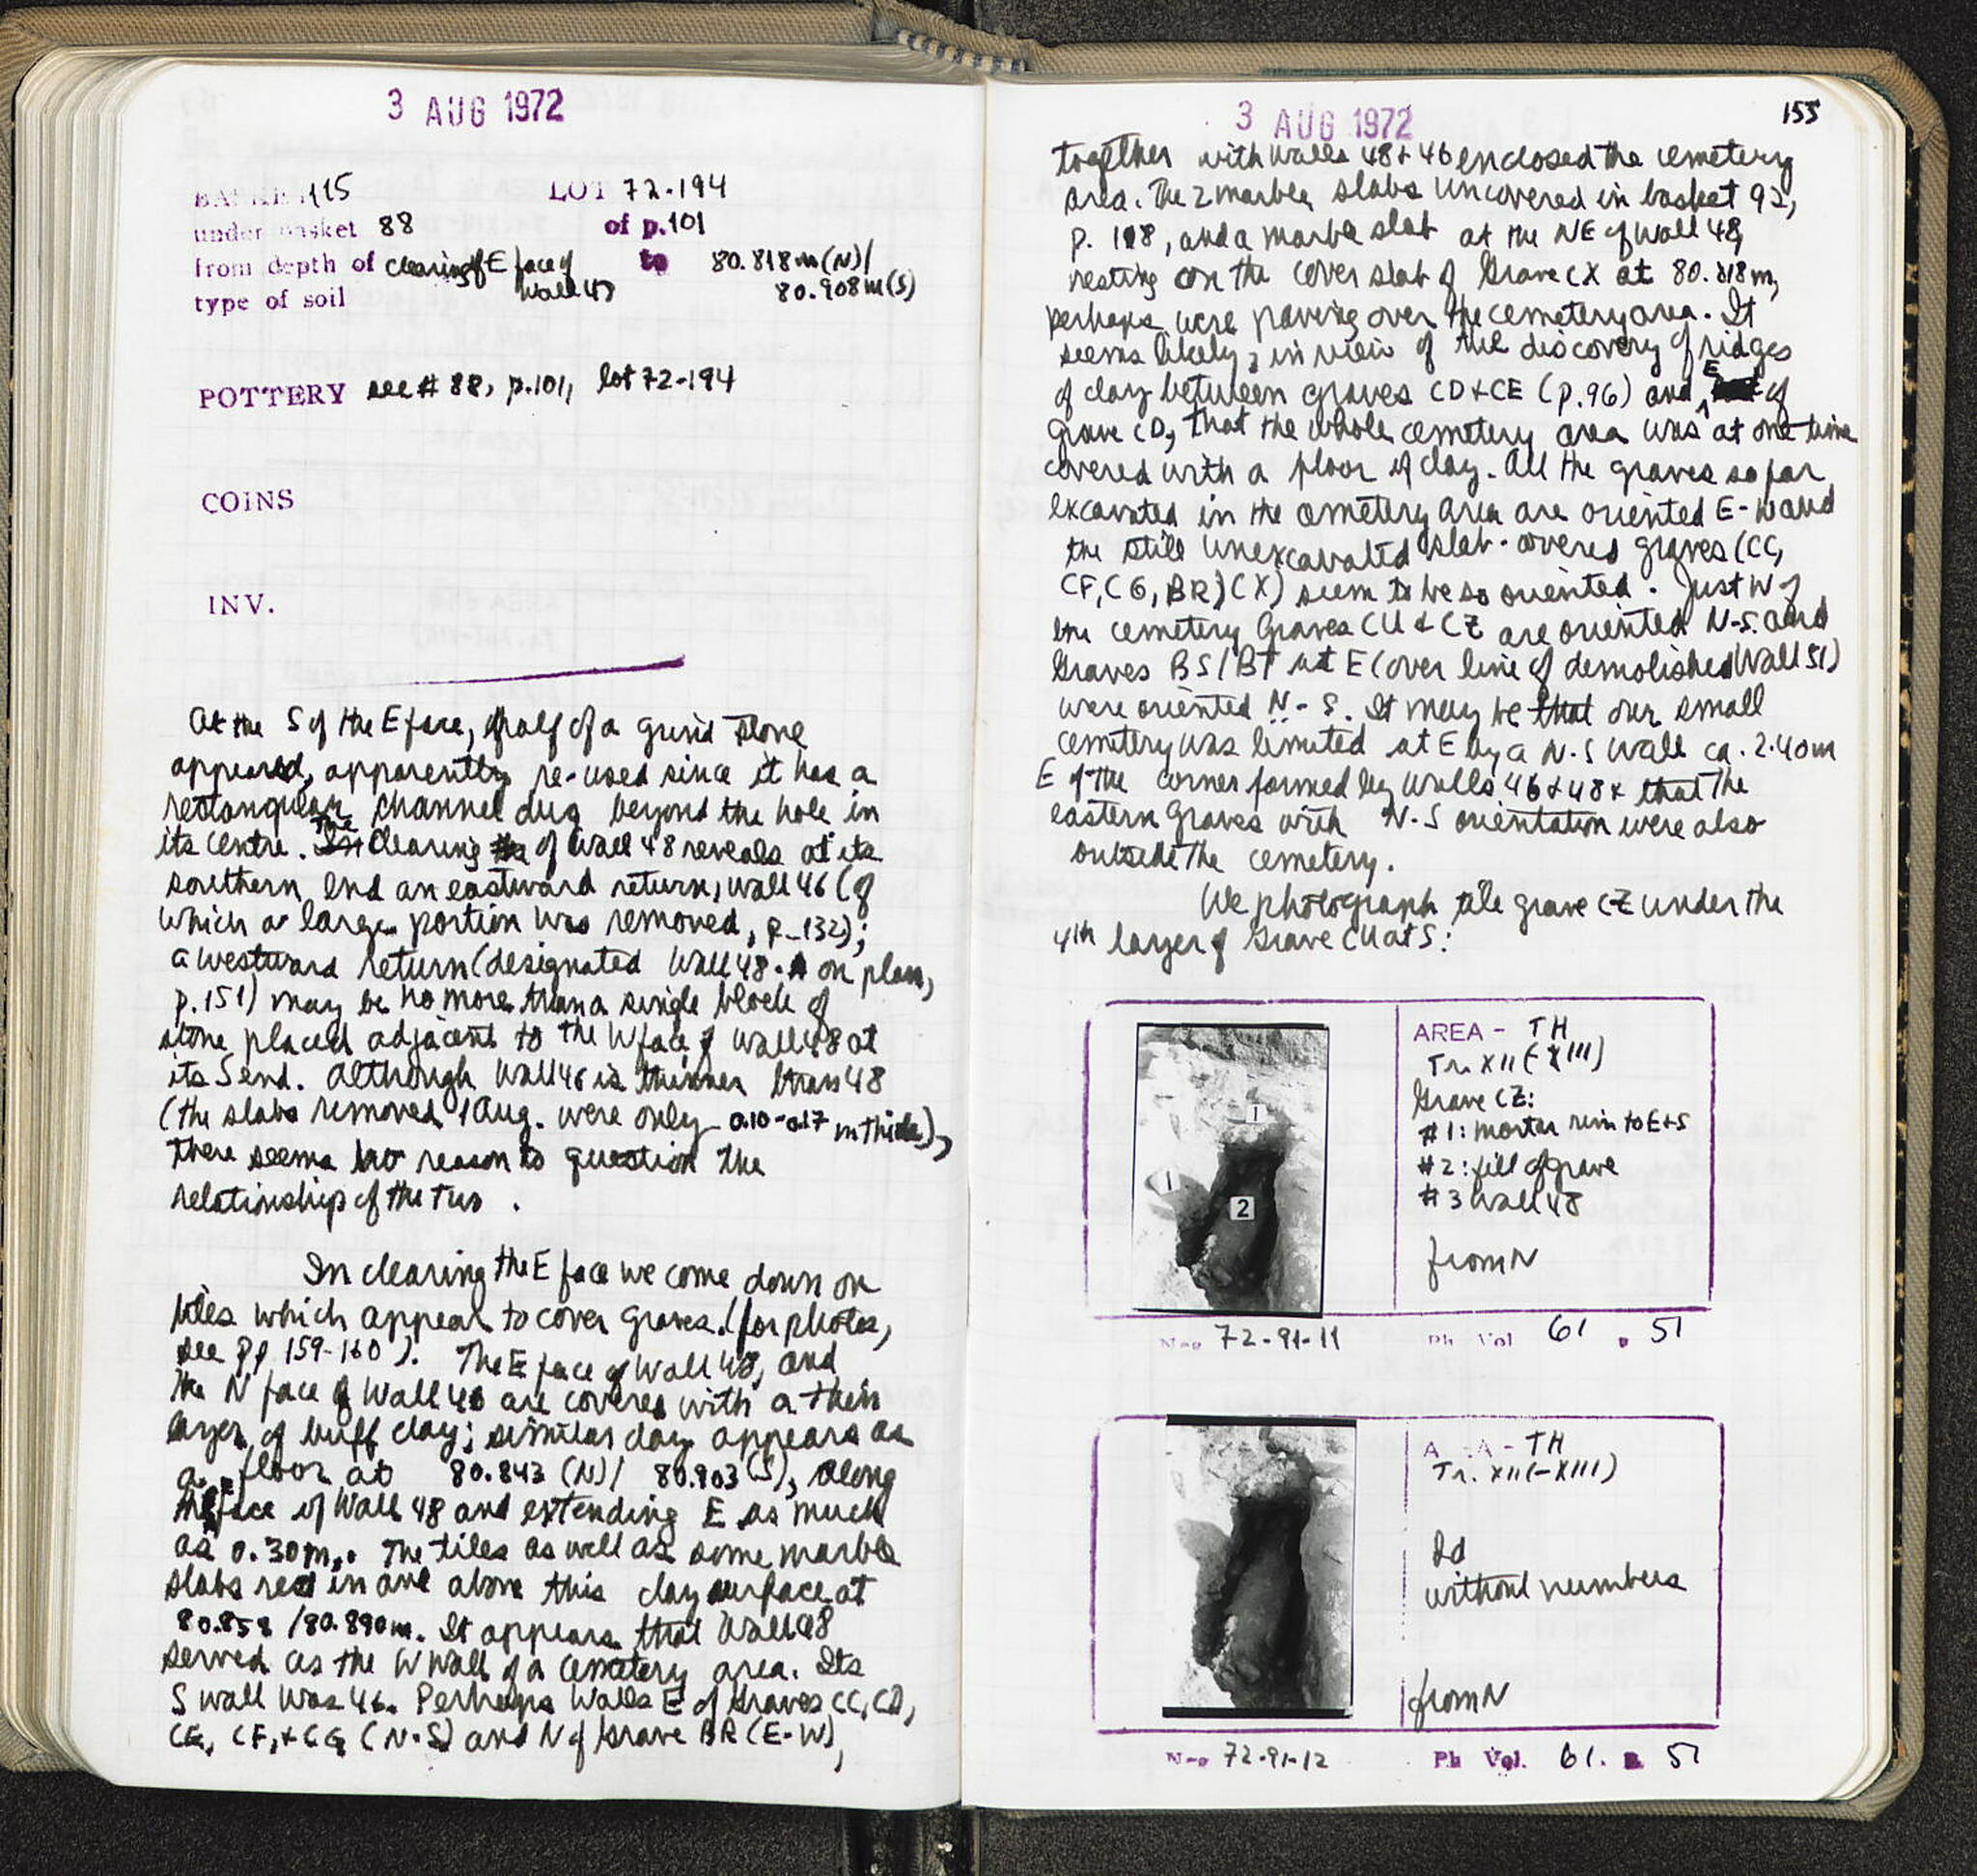 3 AUG 1972
BASKET 115 LOT 72-194
under basket 88 of p. 101
from depth of clearing of E face of Wall 48 to 80.818m (N) /
type of soil 80.908m (S)
POTTERY see # 88, p. 101, lot 72-194
COINS
INV.
At the S of the E face, half of a grind stone
appeared, apparently re-used since it has a
rectangular channel dug beyond the hole in
its centre. The clearing of Wall 48 reveals at its
southern end an eastward return, Wall 46 (of
which a large portion was removed, p. 132);
a westward return (designated Wall 48-A on plan,
p. 151) may be no more than a single block of
stone placed adjacent to the W face of Wall 48 at
its S end. Although Wall 46 is thinner than 48
(the slabs removed 1 Aug. were only 0.10-0.17 m thick),
there seems no reason to question the
relationship of the two.
In clearing the E face we come down on
tiles which appear to cover graves. (for photos,
see pp 159-160). The E face of Wall 48, and
the N face of Wall 46 are covered with a thin
layer of buff clay; similar clay appears as
a floor at 80.843 (N) / 80.903 (S), along
the face of Wall 48 and extending E as much
as 0.30 m. The tiles as well as some marble
slabs rest in and above this clay surface at
80.858 / 80.890m. It appears that Wall 48
served as the W wall of a cemetery area. Its
S wall was 46. Perhaps walls E of Graves CC, CD,
CE, CF, + CG (N-S) and N of Grave BR (E-W),
3 AUG 1972
155
together with Walls 48 + 46 enclosed the cemetery
area. The 2 marble slabs uncovered in basket 92,
p. 108, and a marble slab at the NE of Wall 48,
resting on the cover slab of Grave CX at 80.818m,
perhaps were paving over the cemetery area. It
seems likely, in view of the discovery of ridges
of clay between graves CD + CE (p. 96) and E of
grave CD, that the whole cemetery area was at one time
covered with a floor of clay. All the graves so far
excavated in the cemetery area are oriented E-W and
the still unexcavated slab-covered graves (CC,
CF, CG, BR, CX) seem to be so oriented. Just W of
the cemetery Graves CU & CZ are oriented N-S. and
Graves BS/BT at E (over line of demolished Wall 51)
were oriented N-S. It may be that our small
cemetery was limited at E by a N-S wall ca. 2.40m
E of the corner formed by Walls 46 & 48 & that the
eastern graves with N-S orientation were also
outside the cemetery.
We photograph tile grave CZ under the
4th layer of Grave CU at S:
1
1
2
AREA - TH
Tr. XII (-XIII)
Grave CZ:
#1: mortar rim to E+S
#2: fill of grave
#3 Wall 48
from N
Neg 72-91-11 Ph Vol 61 p. 51
AREA - TH
Tr. XII (-XIII)
Id
without numbers
from N
Neg 72-91-12 Ph Vol. 61. p. 51